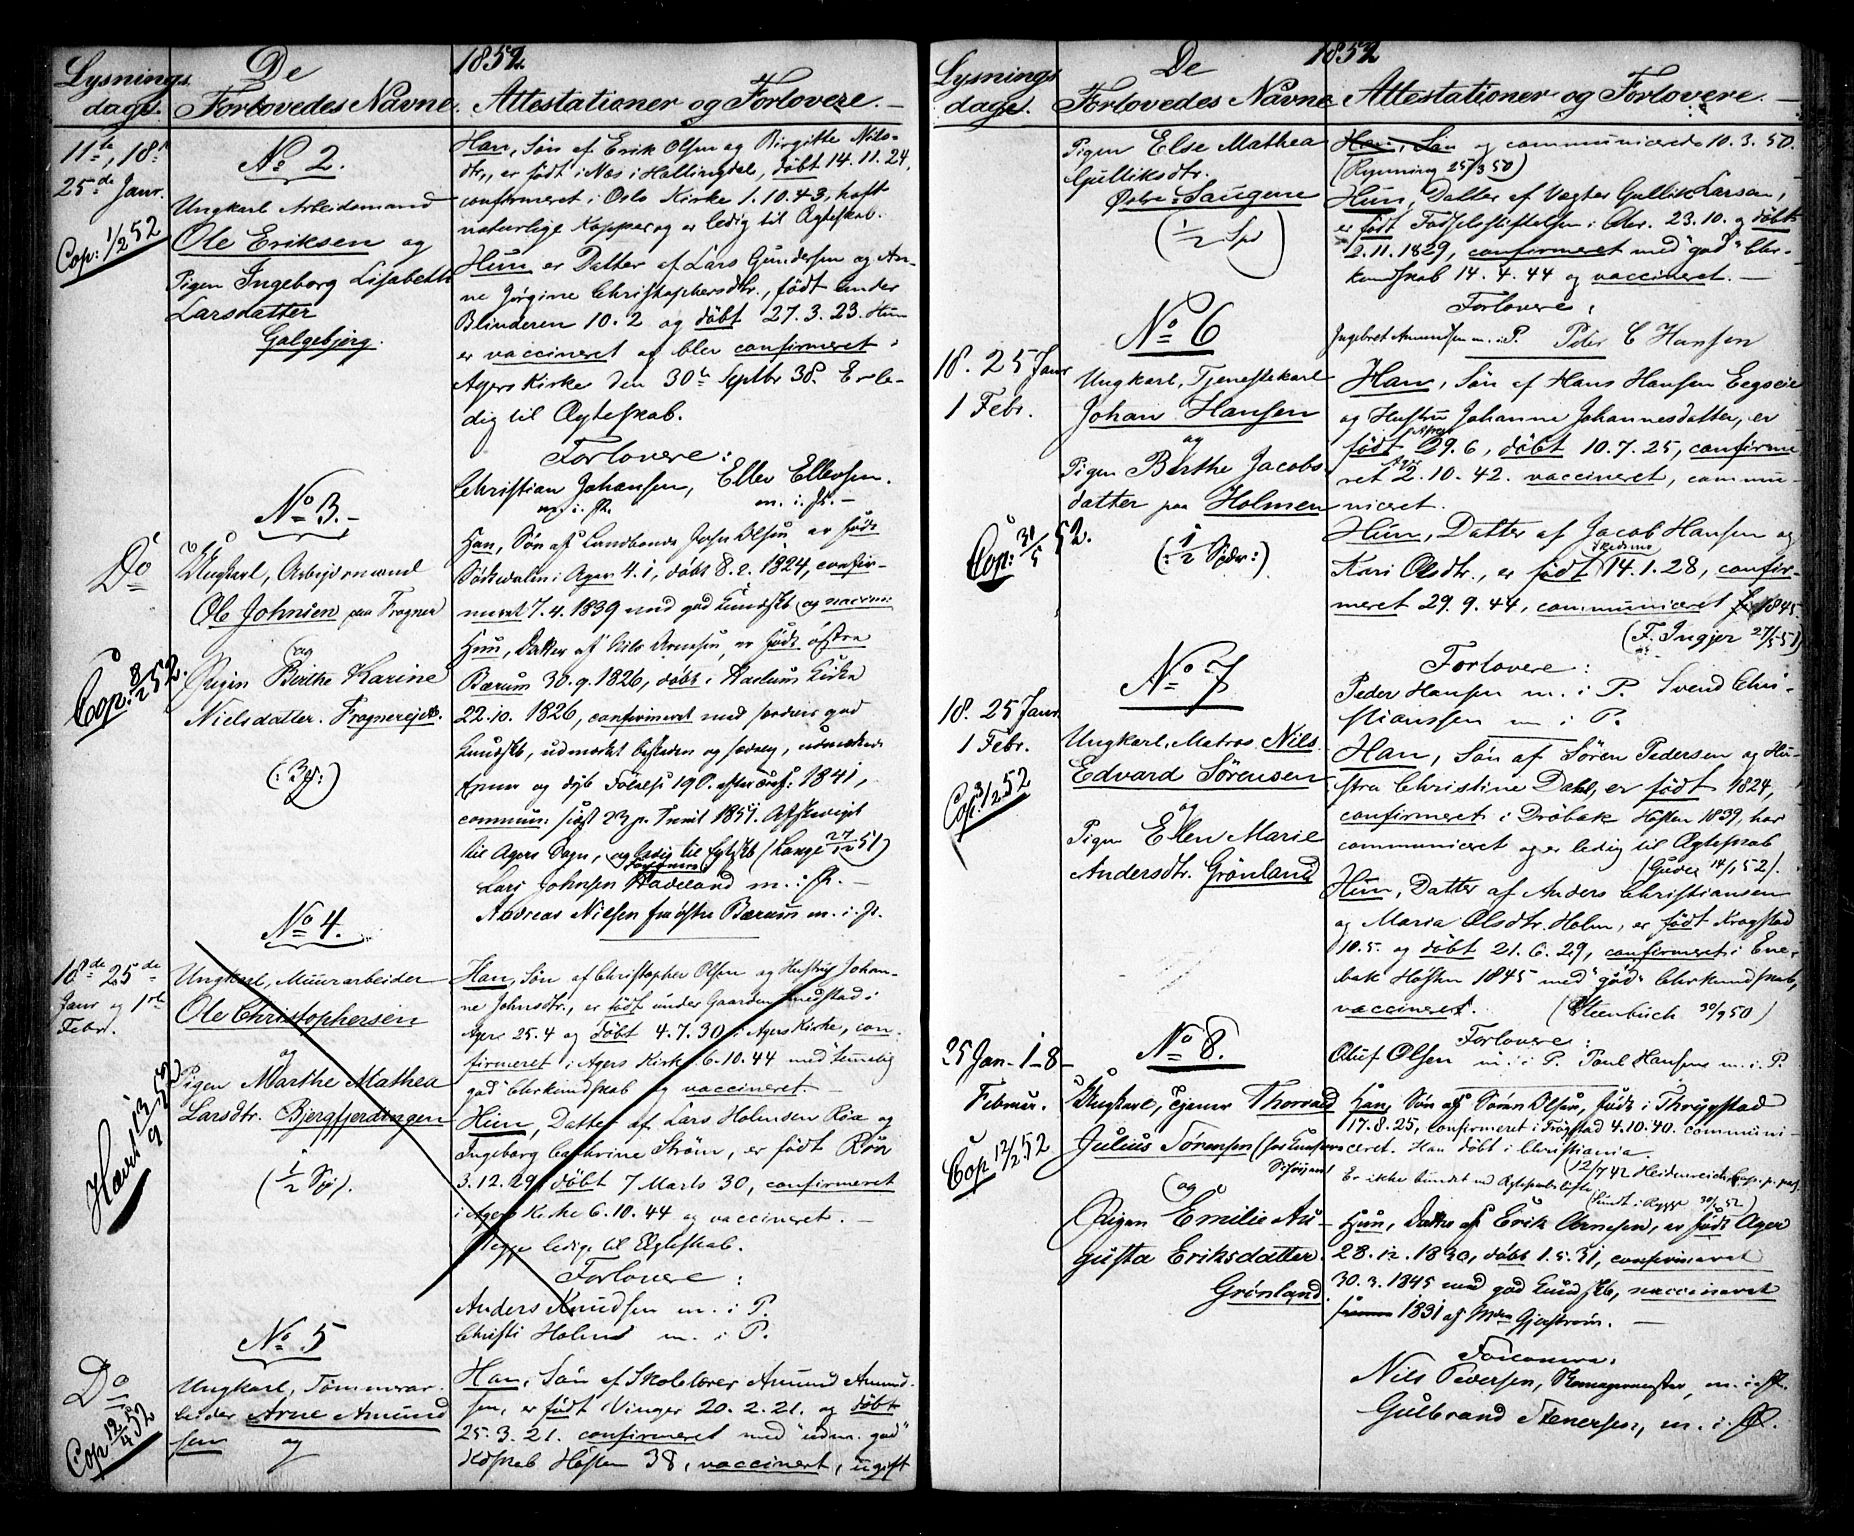 Lysnings
dage.
De
Forlovedes Navne.
1852
Attestationer og Forlovere.
11te, 18de
25de Janr.
Cop: 1/2 52
No 2.
Ungkarl Arbeidsmand
Ole Eriksen og
Pigen Ingeborg Lisabeth
Larsdatter
Galgebjerg.
Han, Søn af Erik Olsen og Birgitte Nils-
dtr., er født i Næs i Hallingdal, døbt 14.11.24,
confirmeret i Oslo Kirke 1.10.43, haft
naturlige Kopper og er ledig til Ægteskab.
Hun er Datter af Lars Gundersen og An-
ne Jørgine Christophersdtr., født under
Blinderen 10.2 og døbt 27.3.23. Hun
er vaccineret og blev confirmeret i
Agers Kirke den 30te Septbr 38. Er le-
dig til Ægteskab.
Forlovere:
Christian Johansen, Ellev Ellevsen.
m. i. P. m. i. P. —
Do
Cop: 8/2 52.
No 3. —
Ungkarl, Arbejdsmand
Ole Johnsen paa Frogner
og
Pigen Birthe Karine
Nielsdatter. Frognerejet.
Han, Søn af Landbonde John Olsen er født
i Ager 4.1, døbt 8.2. 1824, confir-
meret 7.4. 1839 med god Kundskb og vaccin:
Hun, Datter af Nils Arnesen, er født østre
Bærum 30.9.1826, døbt i Haslum Kirke
22.10. 1826, confirmeret med særdeles god
Kundskb, udmærket og
og 1841,
commun: sidst 23 p. Trinit 1851. Afskeediget
til Agers Sogn, og ledig til Egtskb (Lange 27/12 51)
Forlovere:
Lars Johnsen Hadeland m. i. P. —
Andreas Nielsen fra østre Bærum m. i. P.
18de 25de
Janr og 1ste
Febr.
Hævet 13/9 52
No 4.
Ungkarl, Muurarbeider
Ole Christophersen
og
Pigen Marthe Mathea
Larsdtr. Bjergfjerdingen
(1/2 Spd).
Han, Søn af Christopher Olsen og Hustru Johan-
ne Johnsdtr., er født under Gaarden i
Ager 25.4 og døbt 4.7.30 i Agers Kirke, con-
firmeret i Agers Kirke 6.10.44 med "temmelig
god" Chrkundskab og vaccineret. —
Hun, Datter af Lars Holmsen Roa og
Ingeborg Cathrine Strøm, er født Røa
3.12.29, døbt 7 Marts 30, confirmeret
i Agers Kirke 6.10.44 og vaccineret. —
Begge ledige til Ægteskab.
Forlovere:
Anders Knudsen m. i P.
Christi Holms m. i P.
Do
Cop 12/4 52
No 5
Ungkarl, Tømmerar-
beider Arne Amund
sen og
Han, Søn af Skolelærer Amund Amund-
sen, er født Vinger 20.2.21. og døbt
25.3.21. confirmeret med "udm. god"
Kdskab Høsten 38, vaccineret, ugift
Lysnings
dage.
De
Forlovedes Navne
1852
Attestationer og Forlovere. —
Pigen Else Mathea
Gulliksdtr.
Øvre Saugene
(1/2 Spd)
Han, Søn og communicerede 10.3.50.
(Rynning 25/3 50)
Hun, Datter af Vægter Gullik Larsen,
er født Fødselsstiftelsen i Chr. 23.10. og døbt
2.11.1829, confirmeret med "god" Chr-
kundskab 14.4.44 og vaccineret. —
Forlovere:
Ingebret Amundsen m. i. P. Peder C Hansen
18. 25 Janr
1 Febr.
Cop: 31/5 52.
No 6
Ungkarl, Tjenestekarl
Johan Hansen
og
Pigen Birthe Jacobs-
datter paa Holmen
(: 1/2 Spdr :)
Han, Søn af Hans Hansen Eegseie
og Hustru Johanne Johannesdatter, er
født 29.6, døbt 10.7.25, confirme
ret 2.10.42. vaccineret, commu-
niceret.
Hun, Datter af Jacob Hansen og
Kari Olsdtr., er født Skedsmo 14.1.28, confir-
meret 29.9.44, communiceret 1845.
(F. Ingjer 27/5 51)
Forlovere:
Peder Hansen m. i P. Svend Chri-
stianssen m i P.
18. 25 Janr
1 Febr.
Cop: 3/2 52
No 7
Ungkarl, Matros Nils
Edvard Sørensen
og
Pigen Ellen Marie
Andersdtr. Grønland
Han, Søn af Søren Pedersen og Hu-
stru Christine Dahl, er født 1824,
confirmeret i Drøbak Høsten 1839, har
communiceret og er ledig til Ægteskab
(Guder 14/1 52).
Hun, Datter af Anders Christiansen
og Maria Olsdtr. Holm, er født Kragstad
10.5. og døbt 21.6.29, confirmeret i Ene-
bak Høsten 1845 med "god" Chrkundskab,
vaccineret. (Steenbuch 30/9 50)
Forlovere:
Oluf Olsen m. i P. Paul Hansen m. i P.
25 Jan - 1 - 8 -
Februar.
Cop 12/2 52
No 8.
Ungkarl, Tjener Thorvald
Julius Sørensen
og
Pigen Emilie Au-
gusta Eriksdatter.
Grønland.
Han, Søn af Søren Olsen, født i Thrygstad
17.8.25, confirmeret i Trøgstad 4.10.40. communi-
ceret. Han døbt i Christiania.
(12/7 42 Heidenreich
Er ikke bundet ved Ægteskabsløfte
Hun, Datter af Erik Arnesen, er født Ager
28.12.1830, døbt 1.5.31, confirmeret
30.3.1845 med god Kundskb, vaccineret
1831 af Gjerstrøm. —
Forlovere:
Nils Pedersen, m. i. P.
Gulbrand Stenersen, m. i P.